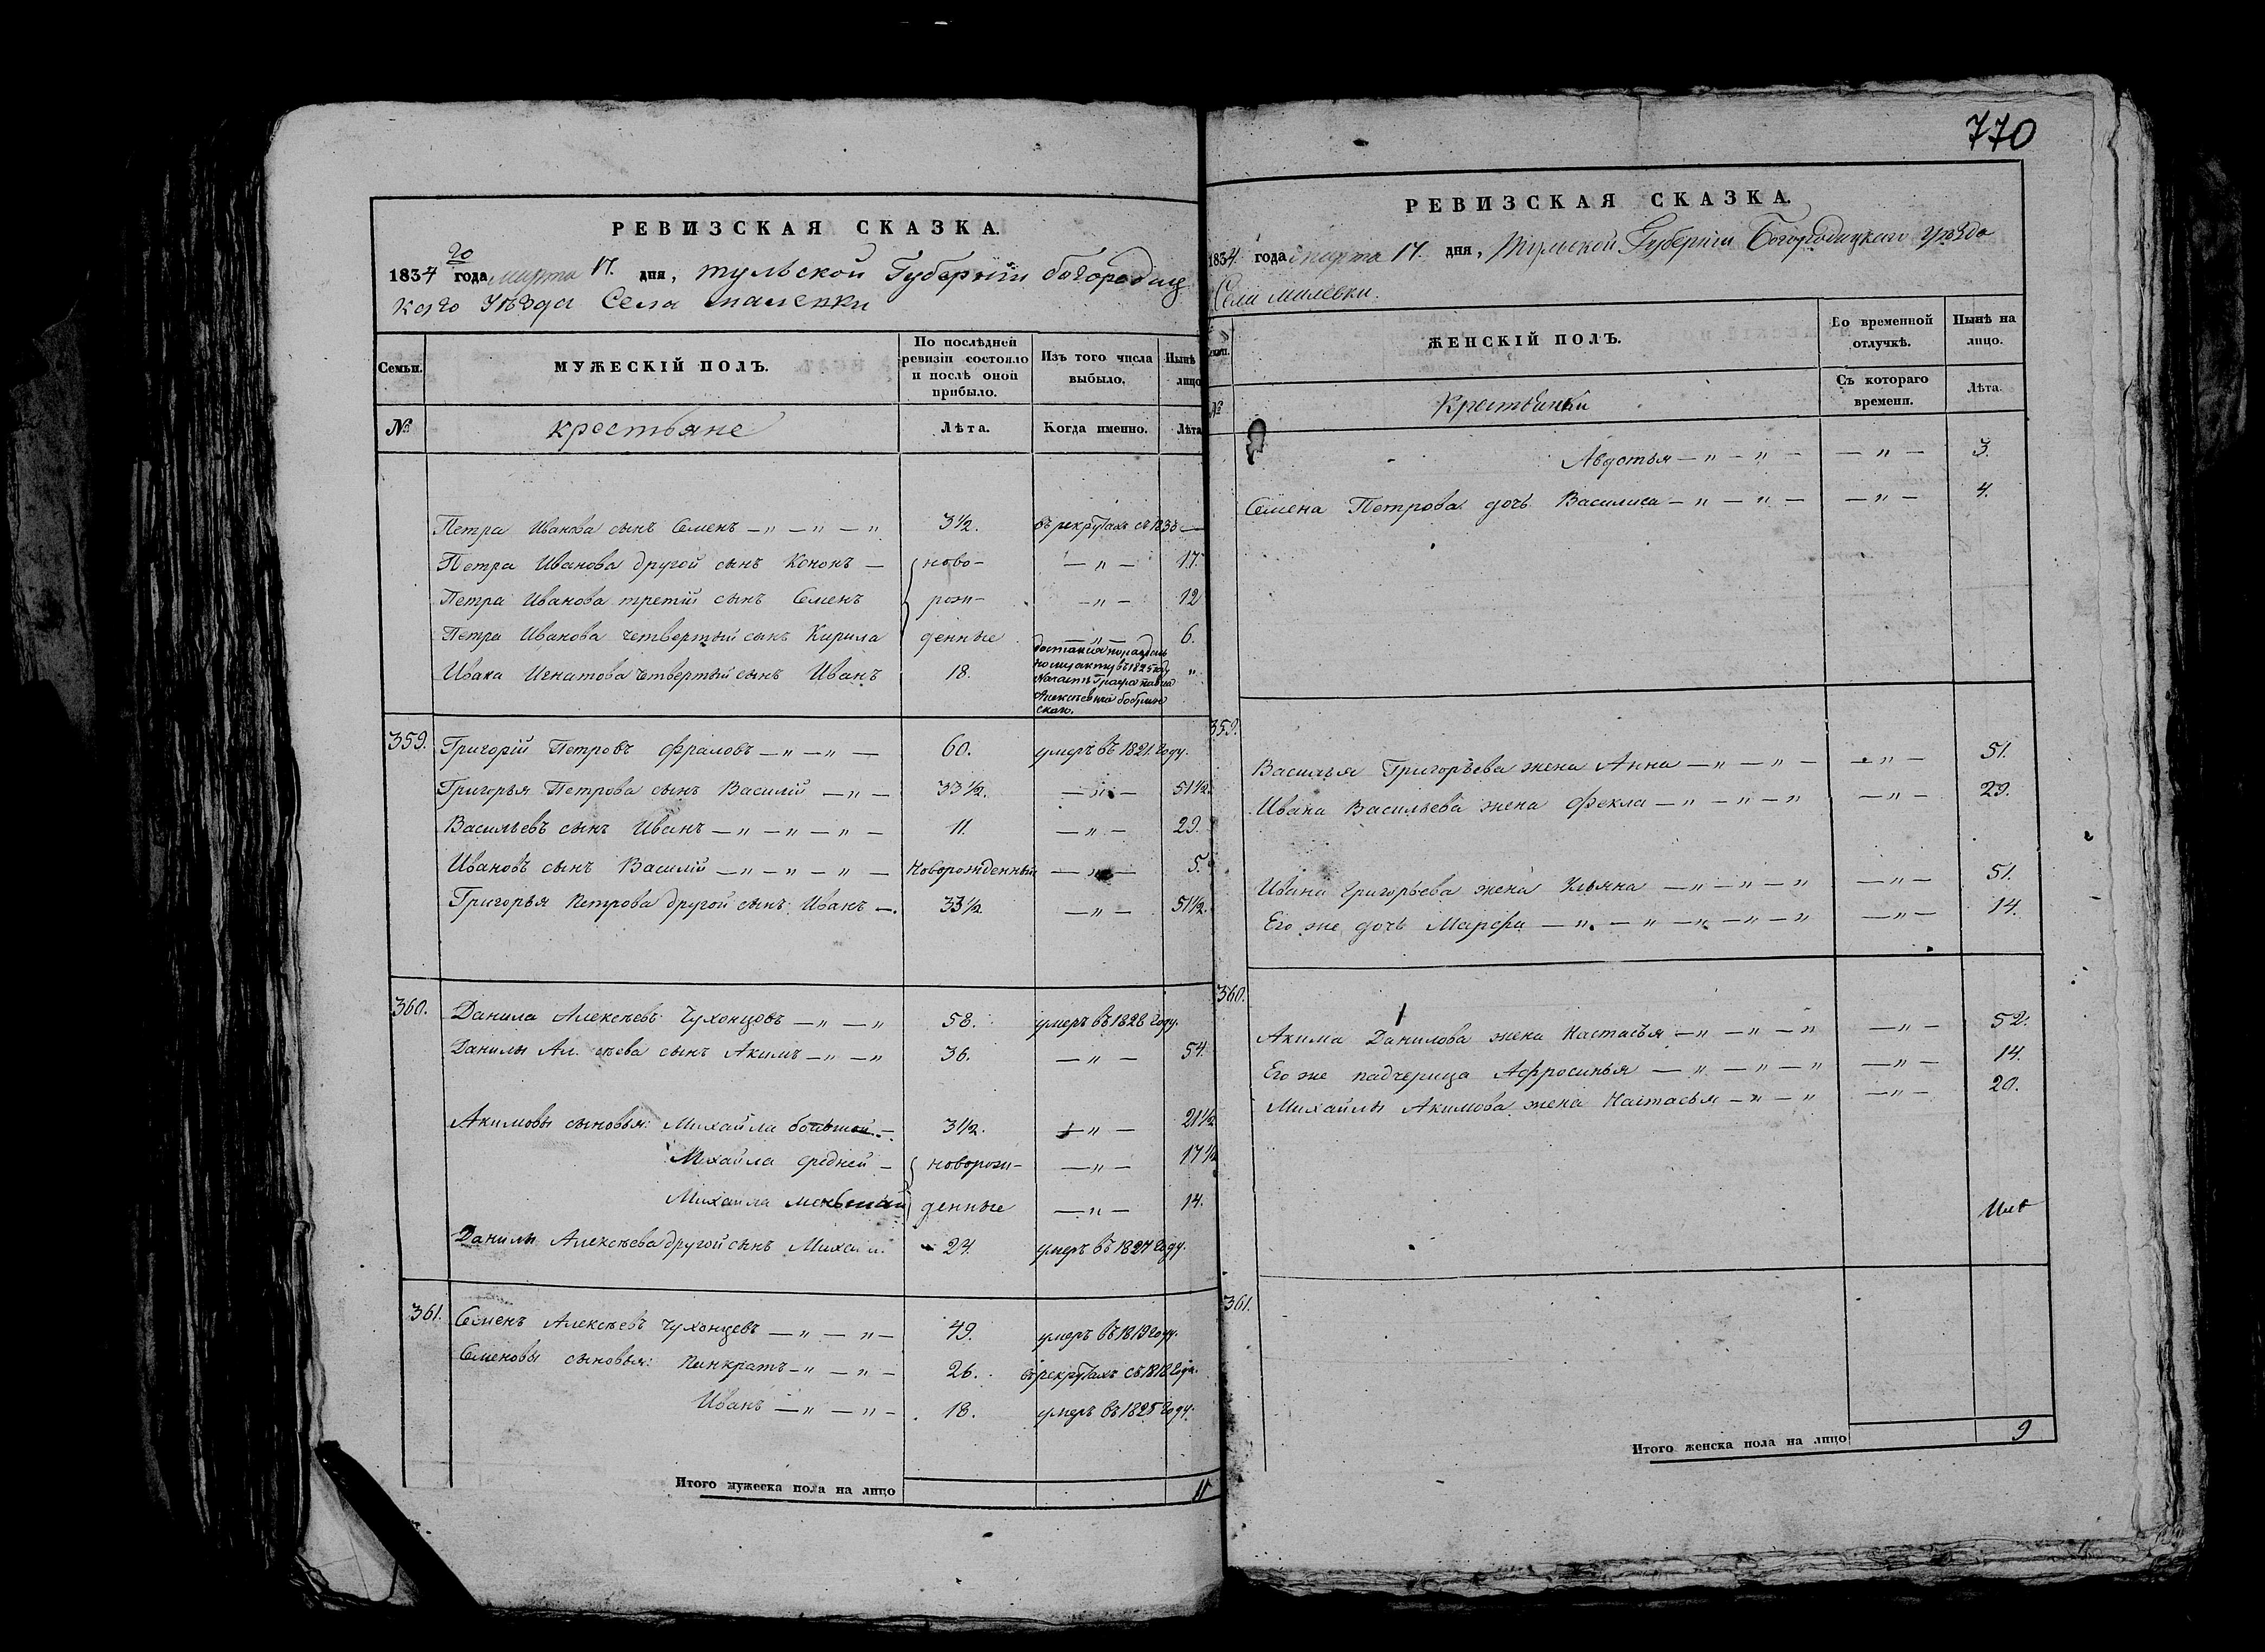 770
РЕВИЗСКАЯ СКАЗКА.
1834 го года марта 17. дня, тульской Губерніи богородиц
каго Уѣзда Села малевки
Семьи.
МУЖЕСКІЙ ПОЛЪ.
По послѣдней ревизіи состояло и послѣ оной прибыло.
Изъ того числа выбыло.
Нынѣ лицо
№
крестьяне
Лѣта.
Когда именно.
Лѣта
Петра Иванова сынъ Семенъ — „ — „ — „ 3½. въ рекрутахъ съ 1833 —
Петра Иванова другой сынъ Кононъ — ново- — „ — 17.
Петра Иванова третій сынъ Семенъ рож- — „ — 12
Петра Иванова четвертый сынъ Кирила денные — „ — 6.
Ивана Игнатова четвертый сынъ Иванъ 18. „
по акту въ 1825 году
Графа Павла
Алексѣевича бобрин
скаго.
359. Григорій Петровъ Фраловъ — „ — „ — 60. умеръ въ 1821. году.
Григорья Петрова сынъ Василій — „ — 33½. — „ — 51½.
Васильевъ сынъ Иванъ — „ — „ — „ — 11. — „ — 29.
Ивановъ сынъ Василій — „ — „ — „ — Новорожденный — „ — 5.
Григорья Петрова другой сынъ Иванъ —. 33½ — „ — 51½.
360. Данила Алексѣевъ Чухонцовъ — „ — „ 58. умеръ въ 1828 году.
Данилы Ал. сѣева сынъ Акимъ — „ — „ 36. — „ — 54.
Акимовы сыновья: Михайла большой — 3½. — „ — 21½
Михайла средней — новорож- — „ — 17½
Михайла меньшай денные — „ — 14.
Данилы Алексѣева другой сынъ Михайла 24. умеръ въ 1827 году.
361. Семенъ Алексѣевъ Чухонцевъ — „ — „ — 49. умеръ въ 1819 году.
Семеновы сыновья: Панкратъ — „ — „ — 26. въ рекрутахъ съ 1818 года.
Иванъ — „ — „ — 18. умеръ въ 1825 году.
Итого мужеска пола на лицо 11
РЕВИЗСКАЯ СКАЗКА.
1834. года марта 17. дня, Тульской Губерніи Богородицкаго уѣзда
Села малевки.
ЖЕНСКІЙ ПОЛЪ.
Во временной отлучкѣ.
Нынѣ на лицо.
№
Крестьянки
Съ котораго времени.
Лѣта.
Авдотья — „ — „ — — „ — 3.
Семена Петрова дочь Василиса — „ — „ — — „ — 4.
359.
Василья Григорьева жена Анна — „ — „ — — „ — 51.
Ивана Васильева жена Фекла — „ — „ — „ — „ — 29.
Ивана Григорьева жена Ульяна — „ — „ — „ — „ — 51.
Его же дочь Марфа — „ — „ — „ — „ — „ — „ — 14.
360.
Акима Данилова жена Настасья — „ — „ — „ — „ — 52.
Его же падчерица Афросинья — „ — „ — „ — „ — 14.
Михайлы Акимова жена Настасья — „ — „ — „ — 20.
361.
Итого женска пола на лицо 9